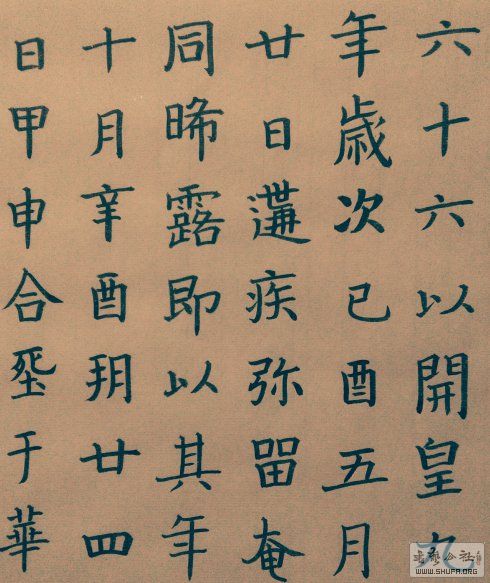 六十六以開皇九
年歲次己酉五月
廿日遘疾弥留奄
同晞露即以其年
十月辛酉朔廿四
日甲申合塟于華
WWW.SHUFA.ORG